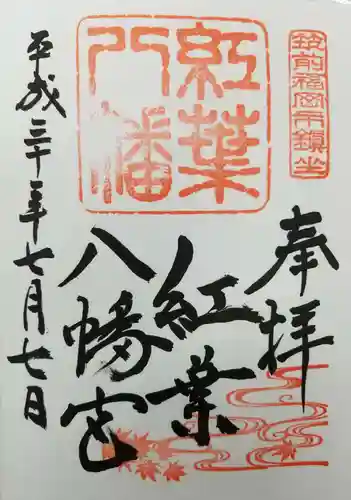 奉拝
筑前福岡市鎮座
紅葉
八幡宮
紅葉
八幡
平成三十年七月七日